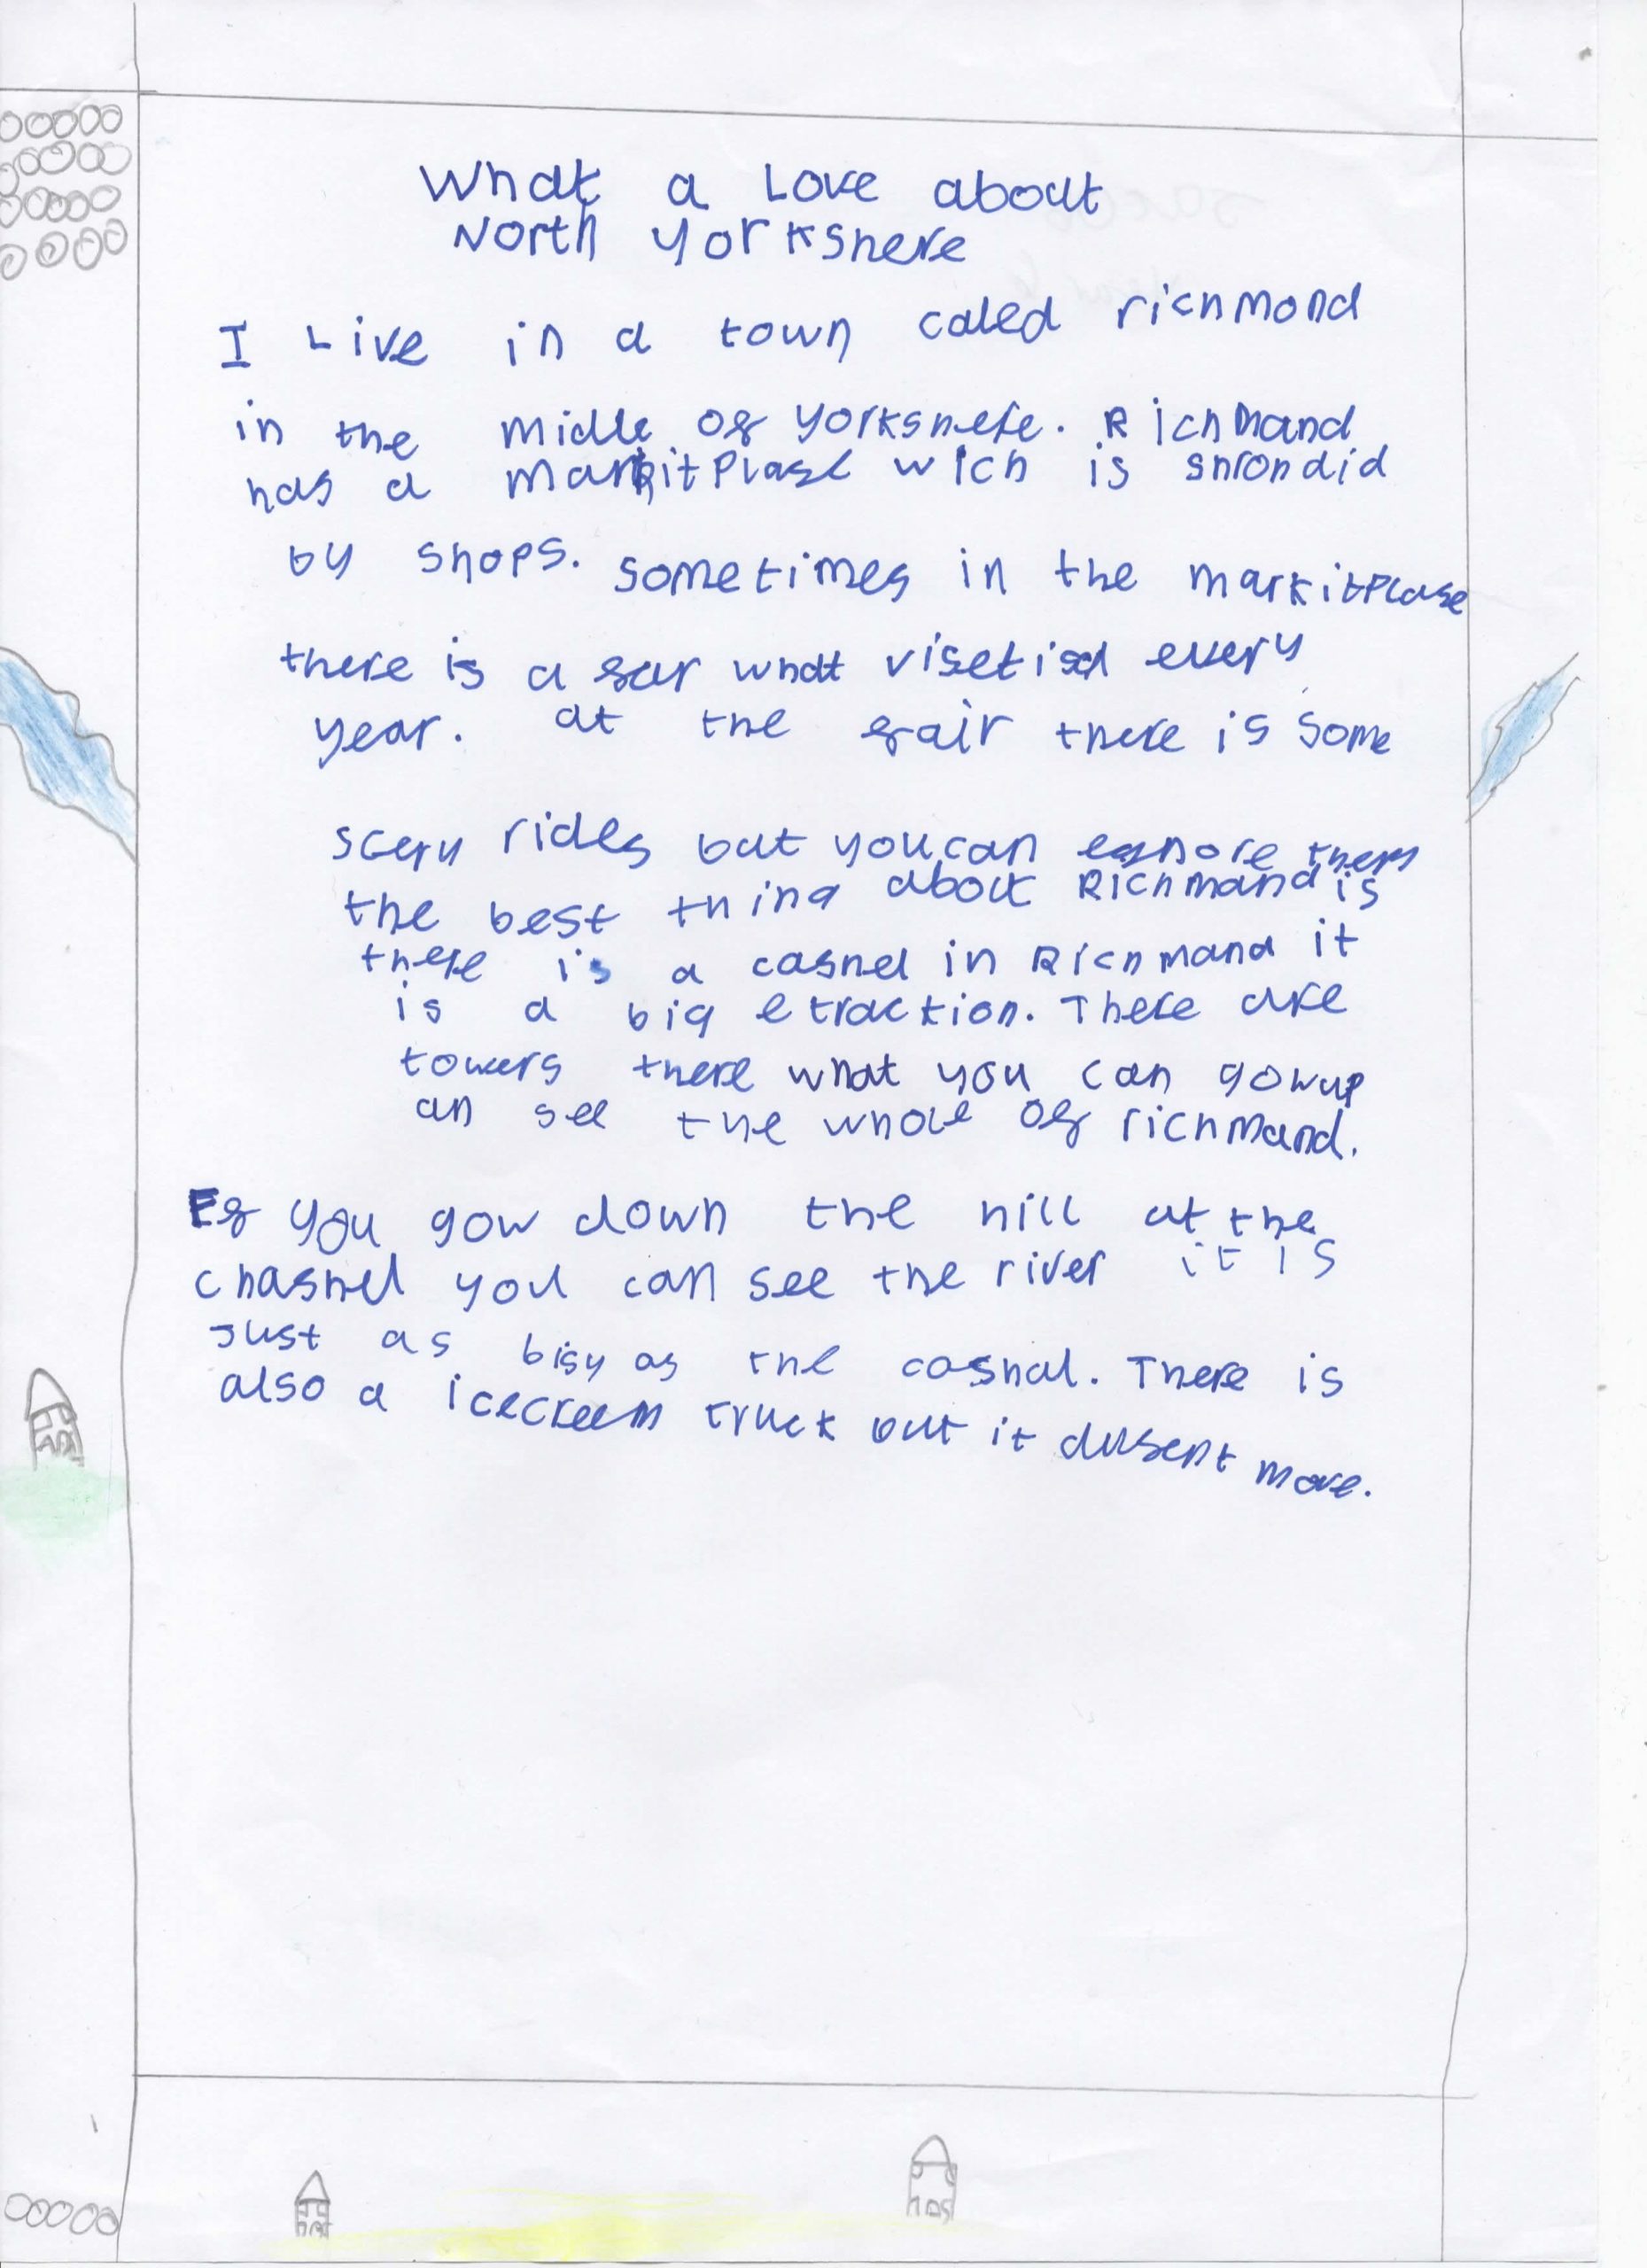 What a Love about
North Yorkshere
I Live in a town caled richmond
in the midle of Yorkshere. Richmand
has a markitplase wich is shrondid
by shops. sometimes in the markitplase
there is a far what visetisd every
year. at the fair there is some
scery rides but you can egnore them
the best thing about Richmand is
there is a cashel in Richmand it
is a big etraction. There are
towers there what you can gowup
an see the whole of richmand.
Ef you gow down the hill at the
chashel you can see the river it is
Just as bisy as the cashal. There is
also a icecreem truck but it dusent move.